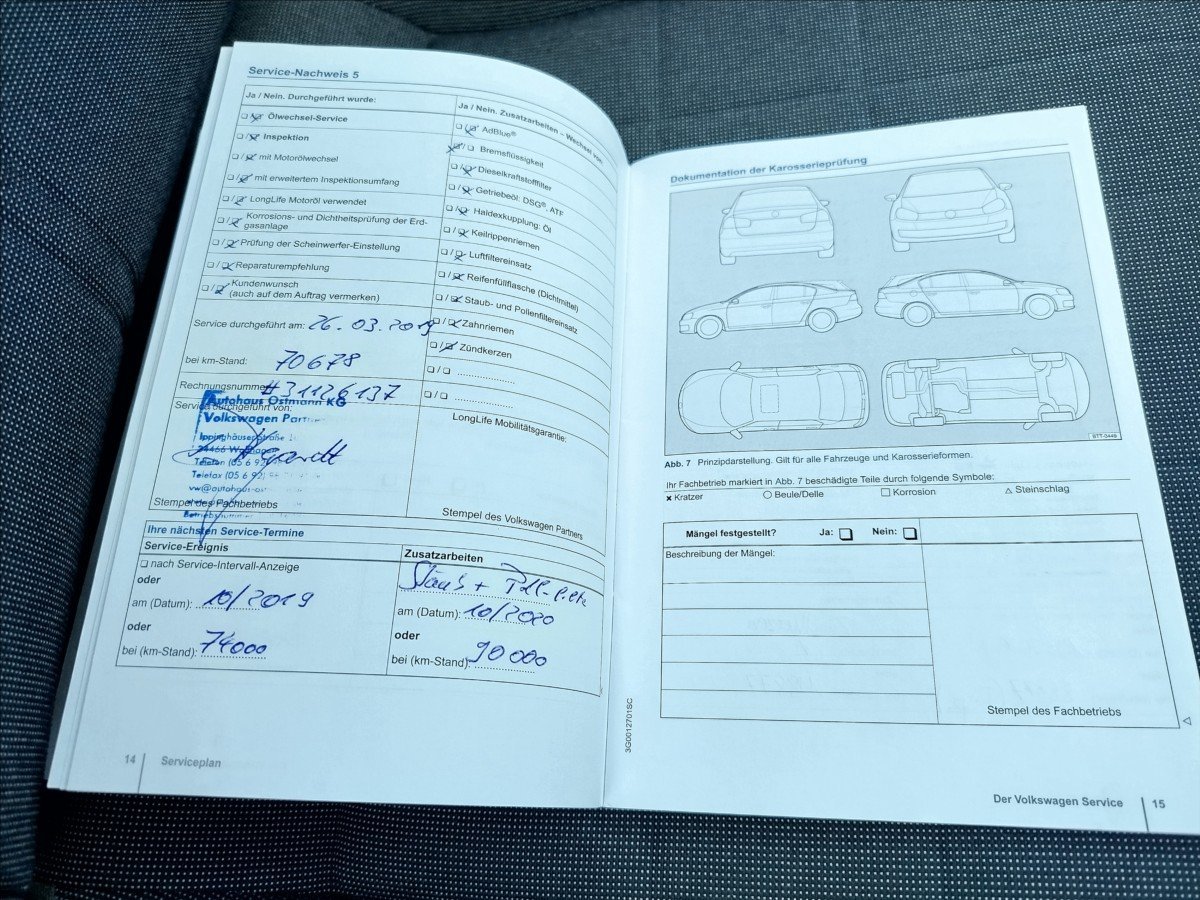 Service-Nachweis 5
Ja / Nein. Durchgeführt wurde:
❏/❏ Ölwechsel-Service
❏/❏ Inspektion
❏/❏ mit Motorölwechsel
❏/❏ mit erweitertem Inspektionsumfang
❏/❏ LongLife Motoröl verwendet
❏/❏ Korrosions- und Dichtheitsprüfung der Erd-
gasanlage
❏/❏ Prüfung der Scheinwerfer-Einstellung
❏/❏ Reparaturempfehlung
❏/❏ Kundenwunsch
(auch auf dem Auftrag vermerken)
Service durchgeführt am: 26.03.2019
bei km-Stand: 70678
Rechnungsnummer #31126137
Service durchgeführt von:
Autohaus Ostmann KG
Volkswagen Partner
Ippinghäuser Straße
34466 Wolfhagen
Telefon (05 6 92)
Telefax (05 6 92)
vw@autohaus-ost
Stempel des Fachbetriebs
Ja / Nein. Zusatzarbeiten – Wechsel von:
❏/❏ AdBlue®
❏/❏ Bremsflüssigkeit
❏/❏ Dieselkraftstofffilter
❏/❏ Getriebeöl: DSG®, ATF
❏/❏ Haldexkupplung: Öl
❏/❏ Keilrippenriemen
❏/❏ Luftfiltereinsatz
❏/❏ Reifenfüllflasche (Dichtmittel)
❏/❏ Staub- und Pollenfiltereinsatz
❏/❏ Zahnriemen
❏/❏ Zündkerzen
❏/❏ ....................
❏/❏ ....................
LongLife Mobilitätsgarantie:
Stempel des Volkswagen Partners
Ihre nächsten Service-Termine
Service-Ereignis
❏ nach Service-Intervall-Anzeige
oder
am (Datum): 10/2019
oder
bei (km-Stand): 74000
Zusatzarbeiten
Staub + Poll-filter
am (Datum): 10/2020
oder
bei (km-Stand): 90 000
14 Serviceplan
3G0012701SC
Dokumentation der Karosserieprüfung
BTT-0449
Abb. 7 Prinzipdarstellung. Gilt für alle Fahrzeuge und Karosserieformen.
Ihr Fachbetrieb markiert in Abb. 7 beschädigte Teile durch folgende Symbole:
✖ Kratzer ○ Beule/Delle □ Korrosion △ Steinschlag
Mängel festgestellt? Ja: ❏ Nein: ❏
Beschreibung der Mängel:
Stempel des Fachbetriebs
Der Volkswagen Service 15